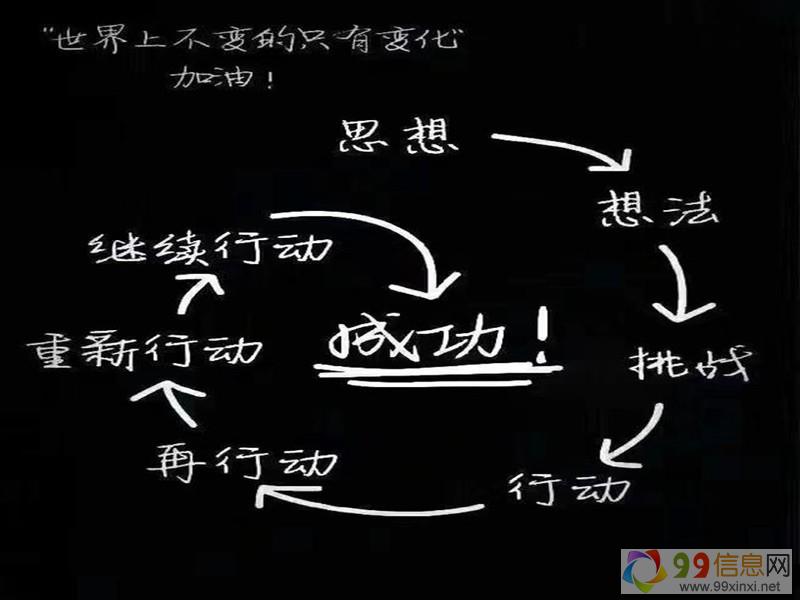 "世界上不变的只有变化"
加油!
思想
想法
挑战
行动
再行动
重新行动
继续行动
成功!
99信息网
www.99xinxi.net